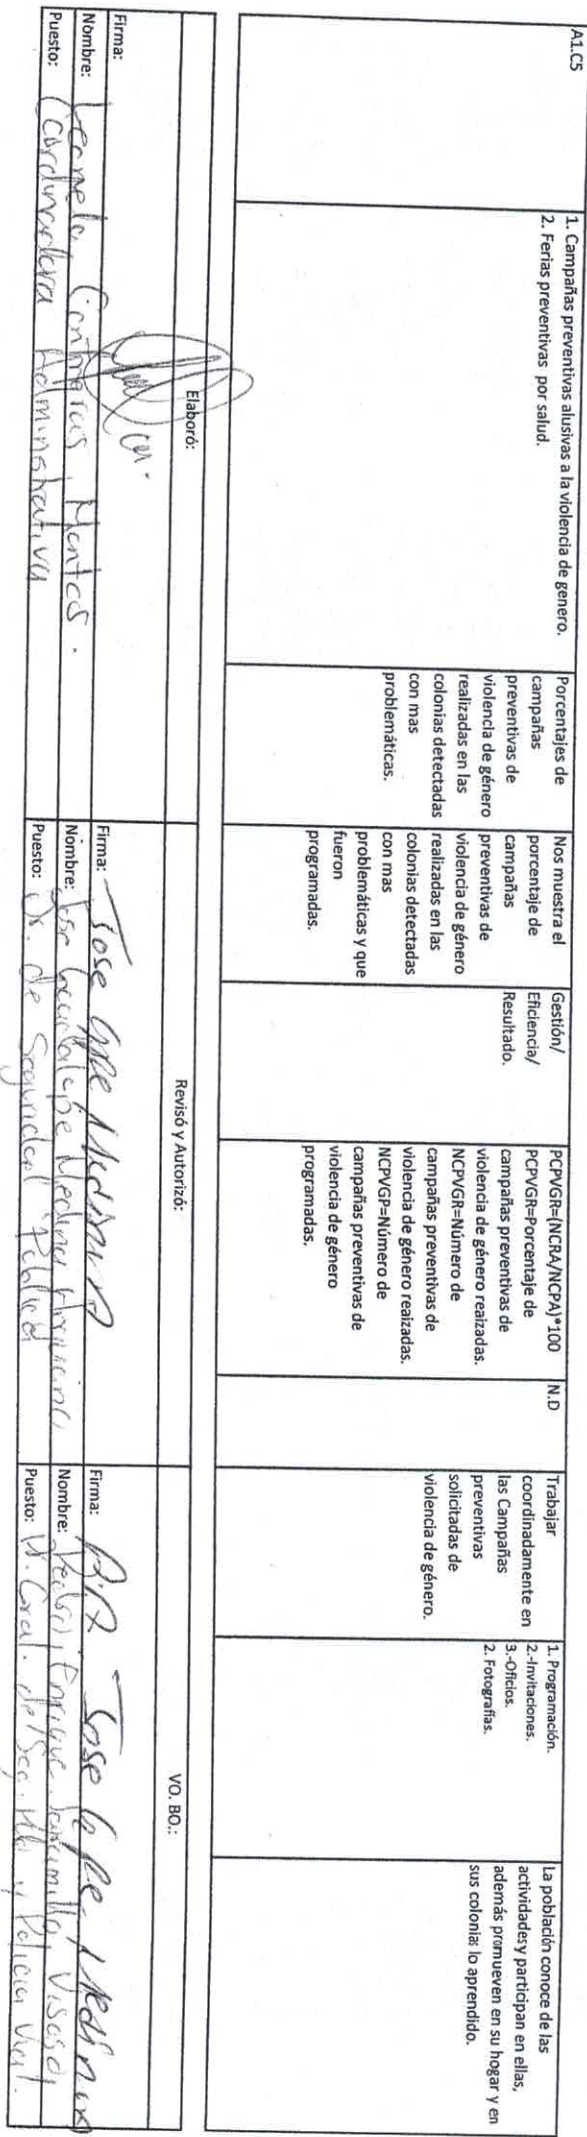 A1.C5
1. Campañas preventivas alusivas a la violencia de genero.
2. Ferias preventivas por salud.
Porcentajes de
campañas
preventivas de
violencia de género
realizadas en las
colonias detectadas
con mas
problemáticas.
Nos muestra el
porcentaje de
campañas
preventivas de
violencia de género
realizadas en las
colonias detectadas
con mas
problemáticas y que
fueron
programadas.
Gestión/
Eficiencia/
Resultado.
PCPVGR=(NCRA/NCPA)*100
PCPVGR=Porcentaje de
campañas preventivas de
violencia de género reaizadas.
NCPVGR=Número de
campañas preventivas de
violencia de género reaizadas.
NCPVGP=Número de
campañas preventivas de
violencia de género
programadas.
N.D
Trabajar
coordinadamente en
las Campañas
preventivas
solicitadas de
violencia de género.
1. Programación.
2.-Invitaciones.
3.-Oficios.
2. Fotografías.
La población conoce de las
actividadesy participan en ellas,
además promueven en su hogar y en
sus colonias lo aprendido.
Elaboró:
Firma:
Nombre: Contreras Montes.
Puesto: Coordinadora Administrativa
Revisó y Autorizó:
Firma: Jose Gpe Medina
Nombre: Jose Guadalupe Medina
Puesto: Dr. de Seguridad Publica
VO. BO.:
Firma: P.A Jose Gpe. Medina
Nombre: Pedro Enrique Jaramillo
Puesto: D. Gral. de Seg. y Policia Vial.